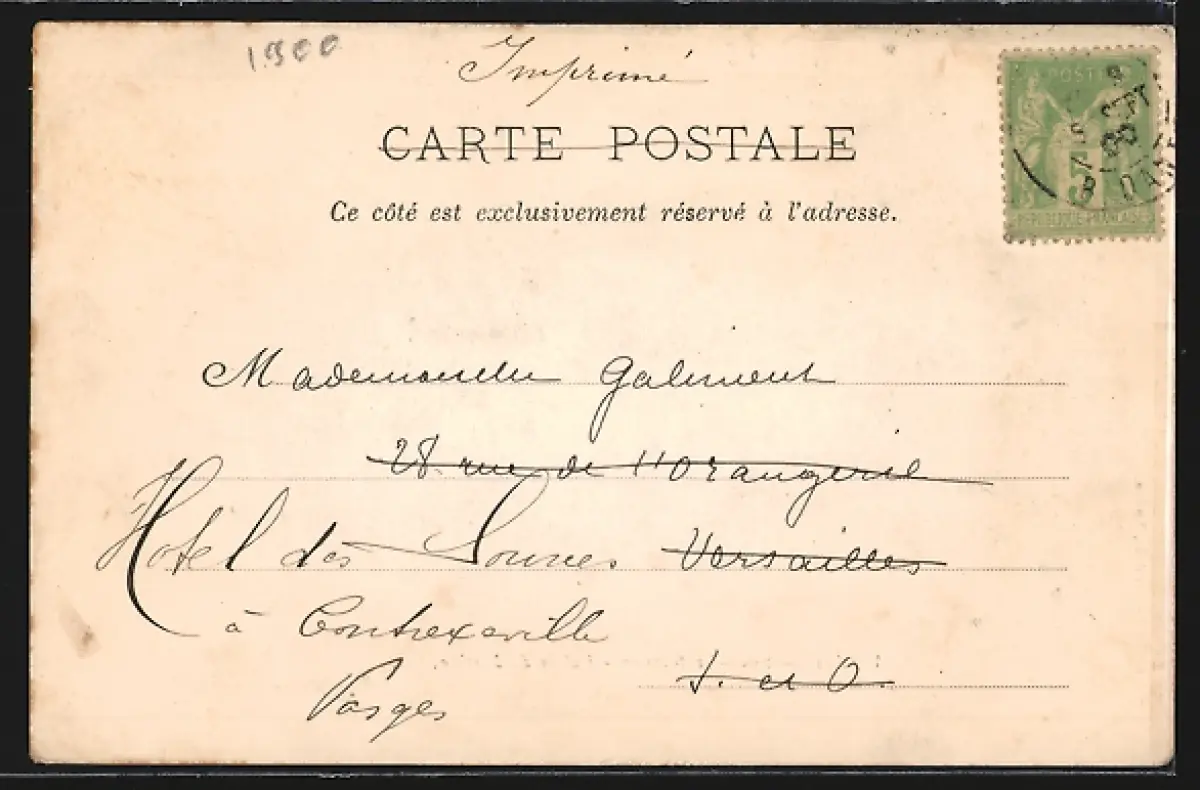 1900
Imprimé
CARTE POSTALE
Ce côté est exclusivement réservé à l'adresse.
POSTES
SEPT
RÉPUBLIQUE FRANÇAISE
Mademoiselle Galiment
28 rue de l'Orangerie
Hotel des Sources Versailles
à Contrexeville
S. et O.
Vosges